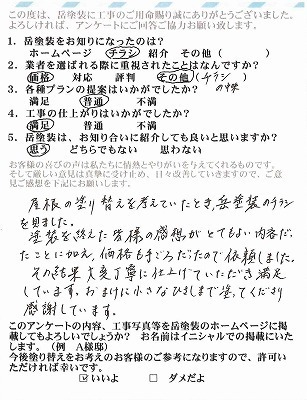 この度は、岳塗装に工事のご用命賜り誠にありがとうございました。
よろしければ、アンケートにご回答ご協力お願い致します。
1. 岳塗装をお知りになったのは？
ホームページ チラシ 紹介 その他（ ）
2. 業者を選ばれる際に重視されたことはなんですか？
価格 対応 評判 その他（チラシの体）
3. 各種プランの提案はいかがでしたか？
満足 普通 不満
4. 工事の仕上がりはいかがでしたか？
満足 普通 不満
5. 岳塗装は、お知り合いに紹介しても良いと思いますか？
思う どちらでもない 思わない
お客様の喜びの声は私たちに情熱とやりがいを与えてくれるものです。
そして厳しい意見は真摯に受け止め、日々改善していきますので、ご意
見ご感想を下記にお願いします。
屋根の塗り替えを考えていたとき、岳塗装のチラシ
を見ました。
塗装を終えた皆様の感想がとてもいい内容だっ
たことに加え、価格も手ごろだったので依頼しました。
その結果大変丁寧に仕上げていただき満足
しています。おまけに小さなひさしまで塗ってくださり
感謝しています。
このアンケートの内容、工事写真等を岳塗装のホームページに掲
載してもよろしいでしょうか？ お名前はイニシャルでの掲載にいた
します。（例 A様邸）
今後塗り替えをお考えのお客様のご参考になりますので、許可い
ただければ幸いです。
☑いいよ □ ダメだよ